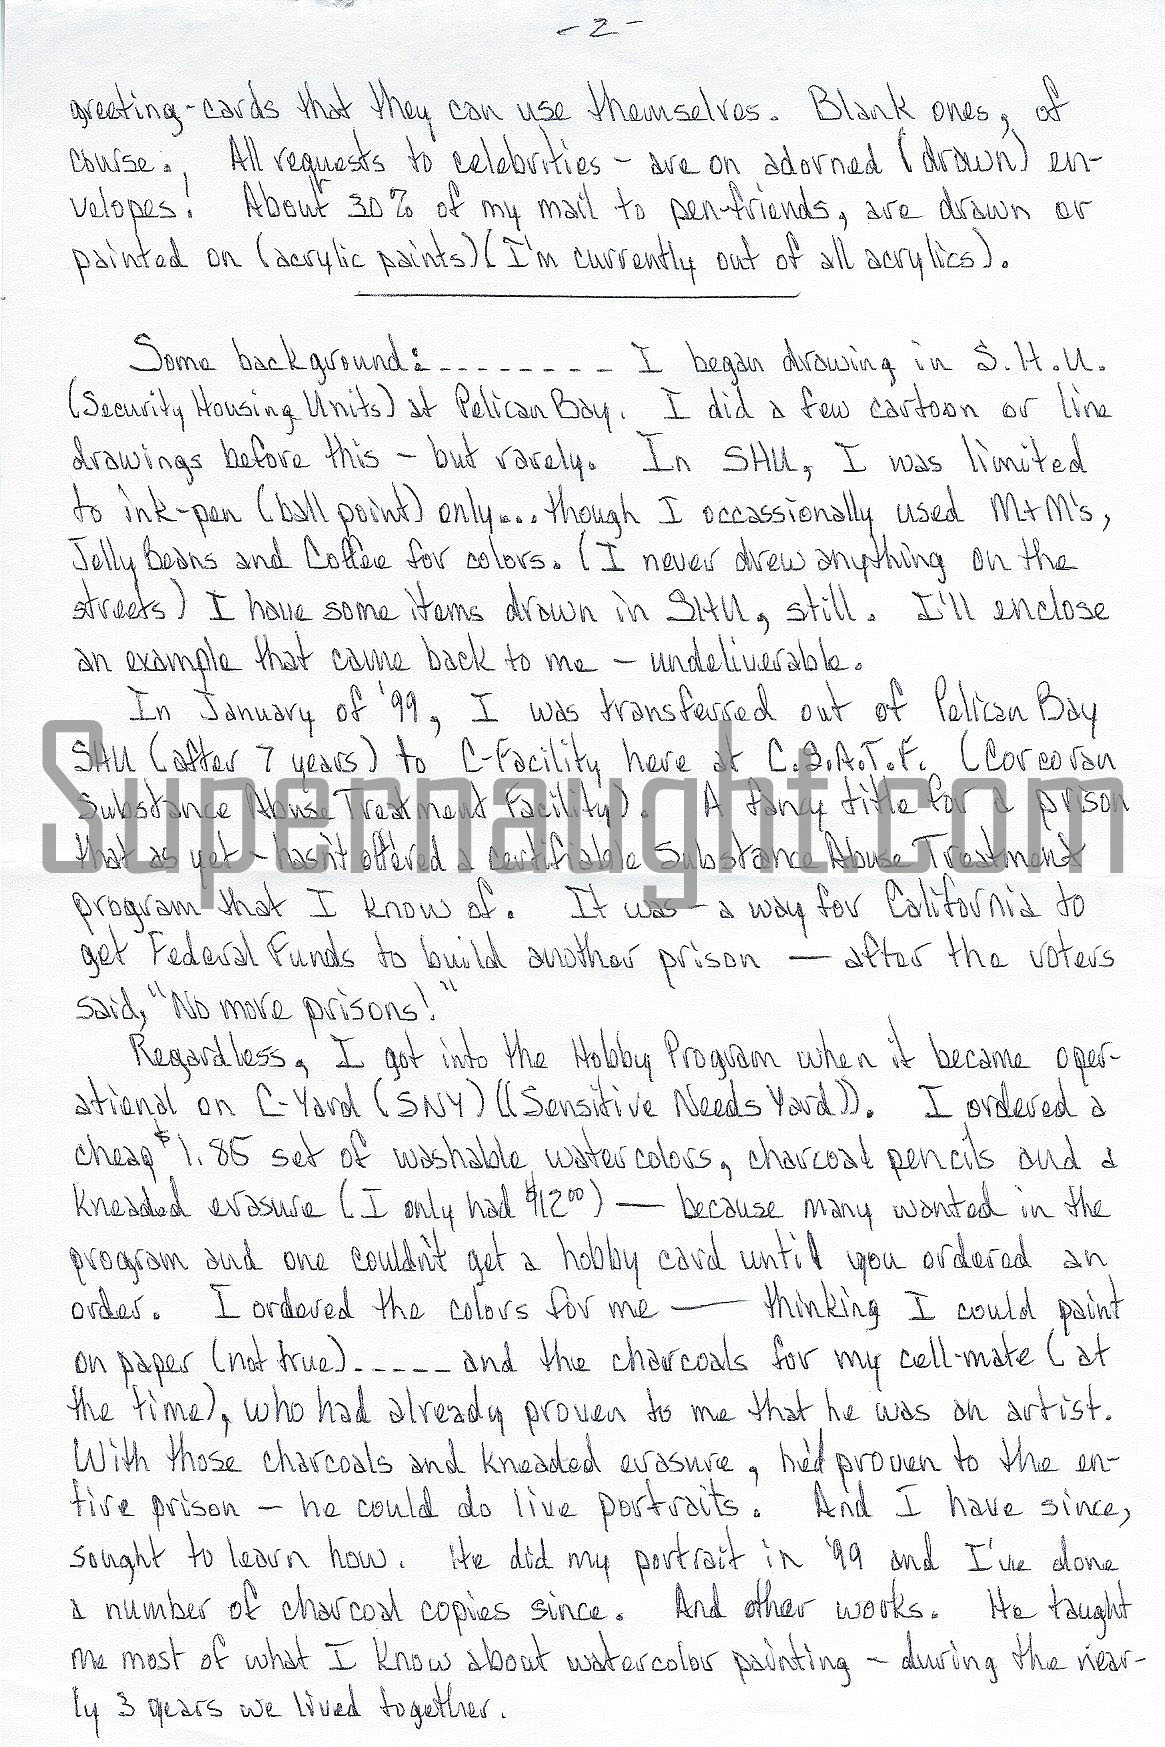 - 2 -
greeting-cards that they can use themselves. Blank ones, of
course., All requests to celebrities - are on adorned (drawn) en-
velopes! About 30% of my mail to pen-friends, are drawn or
painted on (acrylic paints) (I'm currently out of all acrylics).
Some background: - - - - - - - - I began drawing in S.H.U.
(Security Housing Units) at Pelican Bay. I did a few cartoon or line
drawings before this - but rarely. In SHU, I was limited
to ink-pen (ball point) only... though I occassionally used M+M's,
Jelly Beans and Coffee for colors. (I never drew anything on the
streets) I have some items drawn in SHU, still. I'll enclose
an example that came back to me - undeliverable.
In January of '99, I was transferred out of Pelican Bay
SHU (after 7 years) to C-Facility here at C.S.A.T.F. (Corcoran
Substance Abuse Treatment Facility). A fancy title for a prison
that as yet - hasn't offered a certifiable Substance Abuse Treatment
Supernaught.com
program that I know of. It was - a way for California to
get Federal Funds to build another prison — after the voters
said, "No more prisons!"
Regardless, I got into the Hobby Program when it became oper-
ational on C-Yard (SNY) ((Sensitive Needs Yard)). I ordered a
cheap $1.85 set of washable watercolors, charcoal pencils and a
kneaded erasure (I only had $12.00) — because many wanted in the
program and one couldn't get a hobby card until you ordered an
order. I ordered the colors for me — thinking I could paint
on paper (not true) - - - - - and the charcoals for my cell-mate (at
the time), who had already proven to me that he was an artist.
With those charcoals and kneaded erasure, he'd proven to the en-
tire prison - he could do live portraits. And I have since,
sought to learn how. He did my portrait in '99 and I've done
a number of charcoal copies since. And other works. He taught
me most of what I know about watercolor painting - during the near-
ly 3 years we lived together.